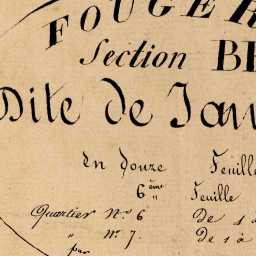 FOUGER
Section B
Dite de Jav
En Douze Feuille
6ème Feuille
Quartier No. 6 De 1 à
" No. 7 De 1 à
par